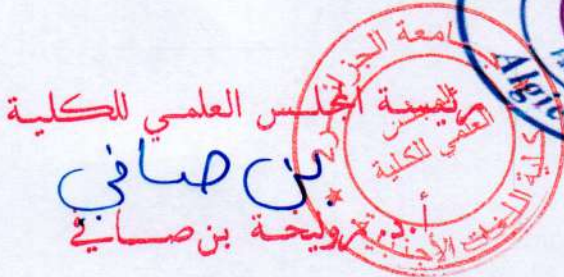 رئيسة المجلس العلمي للكلية
بن صافي
أ.د. زوليخة بن صافي
جامعة الجزائر
كلية اللغات الأجنبية
المجلس
العلمي للكلية
Algie